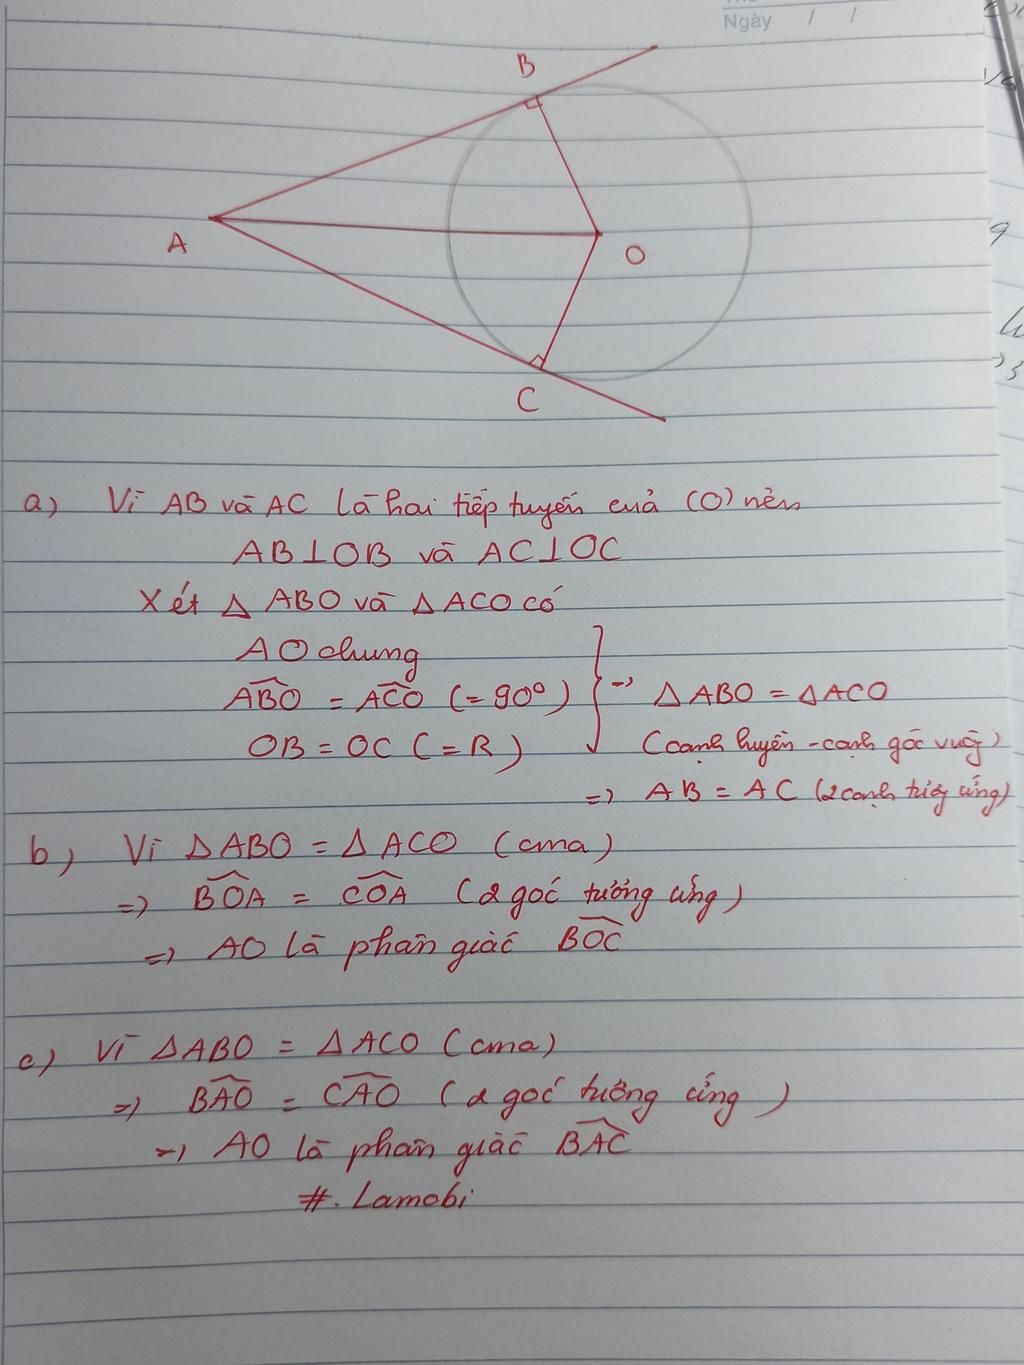 Ngày / /
B
A
O
C
a) Vì AB và AC là hai tiếp tuyến của (O) nên
AB⊥OB và AC⊥OC
Xét △ ABO và △ ACO có
AO chung
ABO = ACO (= 90°)
=> △ ABO = △ ACO
OB = OC (= R)
(cạnh huyền - cạnh góc vuông)
=> AB = AC (2 cạnh tương ứng)
b) Vì △ ABO = △ ACO (cma)
=> BOA = COA (2 góc tương ứng)
=> AO là phân giác BOC
c) Vì △ ABO = △ ACO (cma)
=> BAO = CAO (2 góc tương ứng)
=> AO là phân giác BAC
#. Lamobi